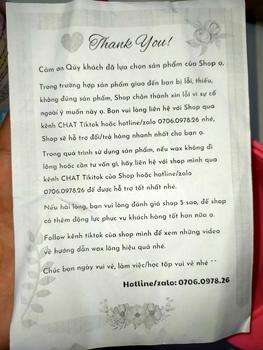 Thank You!
Cảm ơn Qúy khách đã lựa chọn sản phẩm của Shop ạ.
Trong trường hợp sản phẩm giao đến bạn bị lỗi, thiếu,
không đúng sản phẩm, Shop chân thành xin lỗi vì sự cố
ngoài ý muốn này ạ. Bạn vui lòng liên hệ với Shop qua
kênh CHAT Tiktok hoặc hotline/zalo 0706.0978.26 nhé,
Shop sẽ hỗ trợ đổi/trả hàng nhanh nhất cho bạn ạ.
Trong quá trình sử dụng sản phẩm, nếu wax không dính
lông hoặc cần tư vấn gì, hãy liên hệ với shop mình qua
kênh CHAT Tikitok của Shop hoặc hotline/zalo
0706.0978.26 để được hỗ trợ tốt nhất nhé.
Nếu hài lòng, bạn vui lòng đánh giá shop 5 sao, để shop
có thêm động lực phục vụ khách hàng tốt hơn nữa ạ.
Follow kênh tiktok của shop mình để xem những video
về hướng dẫn wax lông hiệu quả nhé.
Chúc bạn ngày vui vẻ, làm việc/học tập vui vẻ nhé ^^
Hotline/zalo: 0706.0978.26